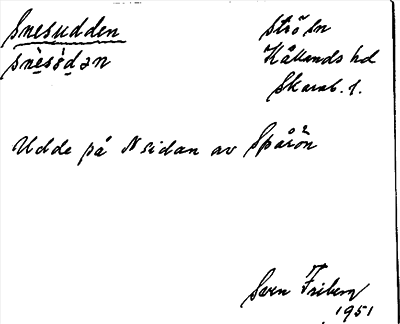 Snesudden
snèsùdən
Strö sn
Kållands hd
Skarab. l.
Udde på N sidan av Spårön
Sven Friberg
1951